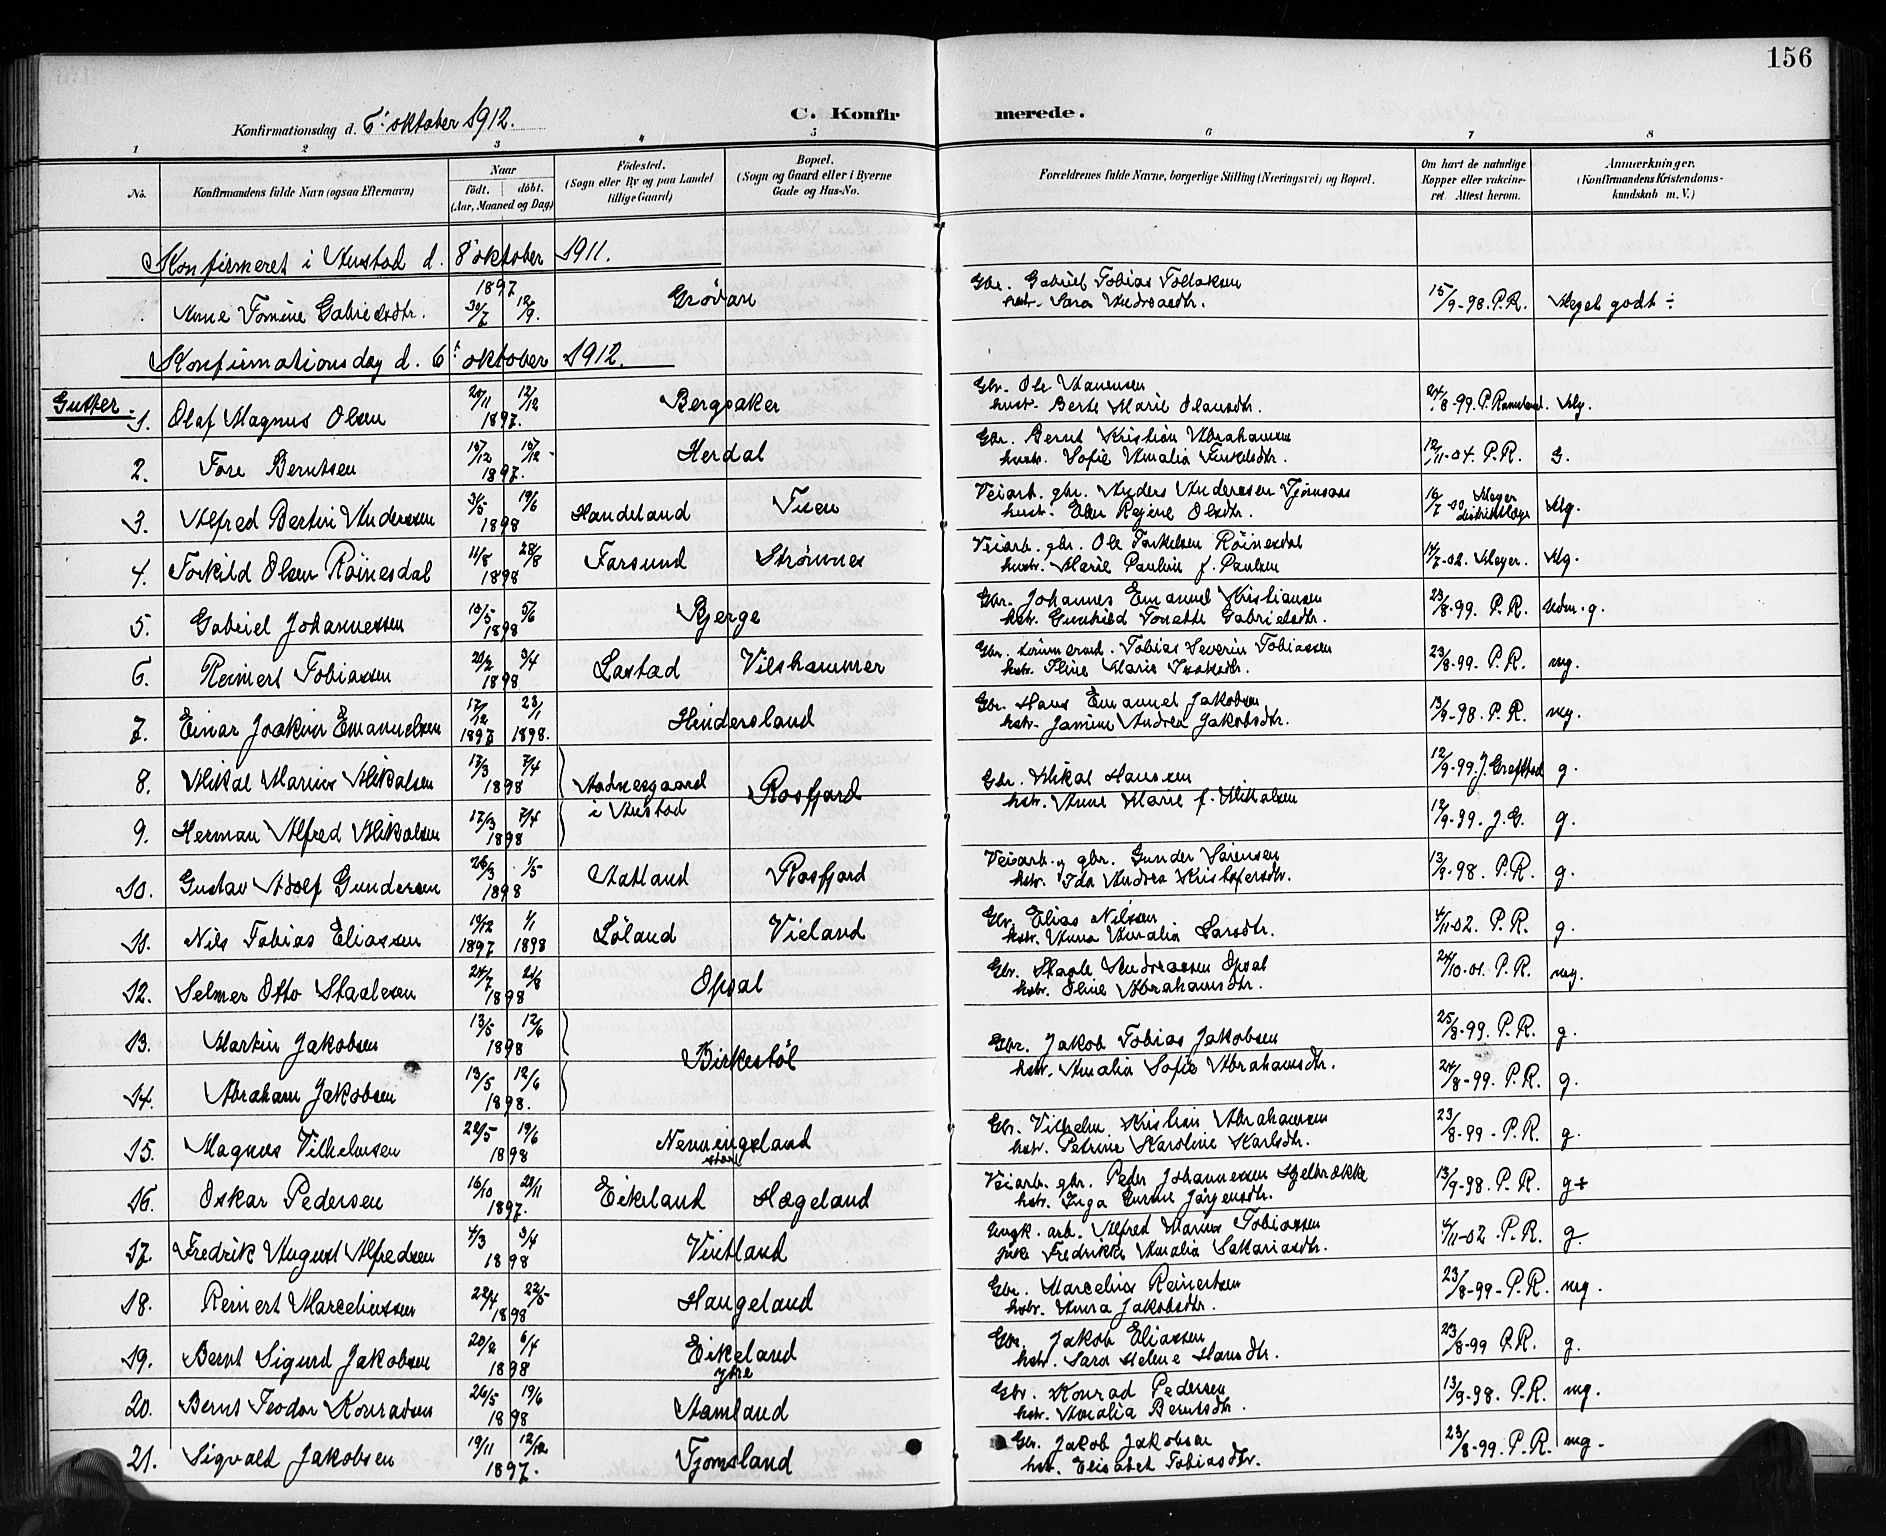 156
C. Konfirmerede.
Konfirmationsdag d. 6' oktober 1912.
1 2 3 4 5 6 7 8
No. Konfirmandens fulde Navn (ogsaa Efternavn) Naar født. døbt. (Aar, Maaned og Dag) Fødested. (Sogn eller By og paa Landet tillige Gaard) Bopæl. (Sogn og Gaard eller i Byerne Gade og Hus-No. Forældrenes fulde Navne, borgerlige Stilling (Næringsvei) og Bopæl. Om havt de naturlige Kopper eller vaccineret. Attest herom. Anmærkninger. (Konfirmandens Kristendomskundskab m. V.)
Konfirmeret i Austad d. 8' oktober 1911.
Anne Tomine Gabrielsdtr. 30/7 12/9 1897 Grøvan Gbr. Gabriel Tobias Tollaksen hustr. Sara Andreasdtr. 15/9-98. P.R. Meget godt ÷
Konfirmationsdag d. 6' oktober 1912.
Gutter.
1. Olaf Magnus Olsen 20/11 12/12 1897. Bergsaker Gbr. Ole hustr. Berte Marie Olausdtr. 24/8-99. P. Ramsland. Mg.
2. Tore Berntsen 15/12 1897. Herdal Gbr. Bernt Kristian Abrahamsen hustr. Sofie Amalia 12/11-04. P.R. 3.
3. Alfred Bertin Andersen 31/5 19/6 1898 Handeland Tisen Veiarb. gbr. Anders Andersen hustr. Elen Regine Olsdtr. 16/7-00 Meyer distriktslæge Mg.
4. Torkild Olsen Röinesdal 11/8 28/8 1898 Farsund Strømnes Veiarb. gbr. Ole Torkelsen Röinesdal hustr. Marie Pauline f. Paulsen 14/7-02. Meyer. Mg.
5. Gabriel Johannessen 13/5 5/6 1898 Bjerge Gbr. Johannes Emanuel Kristiansen hstr. Gunhild Tonette Gabrielsdtr. 23/8-99. P.R. Udm. g.
6. Reinert Tobiassen 20/2 3/4 1898 Lastad Vilshammer Gbr. tømmerm. Tobias Severin Tobiassen hstr. Stine Marie Isaksdtr. 23/8-99. P.R. mg.
7. Einar Joakim Emanuelsen 17/12 1897 23/1 1898. Hindersland Gbr. Hans Emanuel Jakobsen hstr. Jamine Andrea Jakobsdtr. 13/9-98. P.R. mg.
8. Mikal Marius Mikalsen 17/3 7/4 1898 Aadnesgaard i Austad Rosfjord Gbr. Mikal Hanssen hstr. Anne Marie f. Mikalsen 12/9-99. J. g.
9. Herman Alfred Mikalsen 17/3 7/4 1898 12/9-99. J.G. g.
10. Gustav Adolf Gundersen 26/3 1/5 1898 Aatland Rosfjord Veiarb. og gbr. Gunder Sørensen hstr. Ida Andrea Kristofersdtr. 13/9-98. P.R. g.
11. Nils Tobias Eliassen 19/12 1897 1/1 1898 Løland Vieland Gbr. Elias Nilssen hstr. Anna Amalia Larsdtr. 4/11-02. P.R. g.
12. Selmer Otto Staalesen 24/7 21/8 1898 Opsal Gbr. Staale Andreassen Opsal hstr. Oline Abrahamsdtr. 24/10-01. P.R. mg.
13. Martin Jakobsen 13/5 12/6 1898 Birkestöl Gbr. Jakob Tobias Jakobsen hstr. Amalia Sofie Abrahamsdtr. 25/8-99. P.R. g.
14. Abraham Jakobsen 13/5 12/6 1898. 24/8-99. P.R. g.
15. Magnus Vilhelmsen 22/5 19/6 1898 Nenningsland Gbr. Vilhelm Kristian Abrahamsen hstr. Petrine Karoline Karlsdtr. 23/8-99 - P.R. g.
16. Oskar Pedersen 16/10 20/11 1897. Eikeland Hægeland Veiarb. gbr. Peder Johannessen hstr. Inga Gurine Jörgensdtr. 13/9-98. P.R. g+
17. Fredrik August Alfredsen 4/3 3/4 1898 Vintland Ungk. arb. Alfred Marius Tobiassen pike Fredrikke Amalia Sakariasdtr. 4/11-02. P.R. g.
18. Reinert Marceliussen 22/4 22/5 1898 Haugeland Gbr. Marcelius Reinertsen hstr. Anna Jakobsdtr. 23/8-99 - P.R. mg.
19. Bernt Sigurd Jakobsen 20/2 6/4 1898 Eikeland ytre Gbr. Jakob Eliassen hstr. Sara Helene Hansdtr. 23/8-99 P.R. g.
20. Bernt Teodor Konradsen 26/5 19/6 1898 Aamland Gbr. Konrad Pedersen hstr. Amalia Berntsdtr. 13/9-98. P.R. mg.
21. Sigvald Jakobsen 19/11 12/12 1897. Tjomsland Gbr. Jakob Jakobsen hst. Elisabet Tobiasdtr. 23/8-99. P.R. mg.